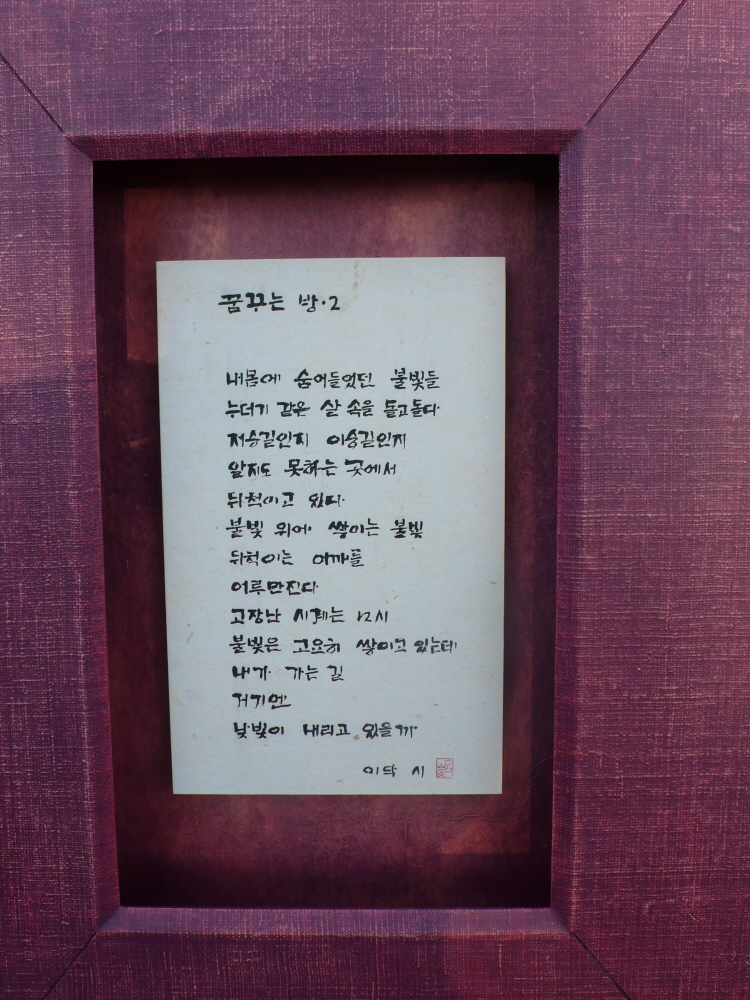 꿈꾸는 방·2
내몸에 숨어들었던 불빛들
누더기 같은 살 속을 돌고돈다
저승길인지 이승길인지
알지도 못하는 곳에서
뒤척이고 있다
불빛 위에 쌓이는 불빛
뒤척이는 어깨를
어루만진다
고장난 시계는 12시
불빛은 고요히 쌓이고 있는데
내가 가는 길
저기엔
낮빛이 내리고 있을까
이닥 시